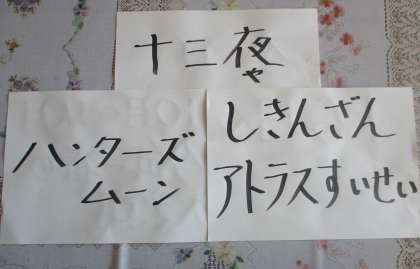 十三夜
や
ハンターズ
ムーン
しきんざん
アトラスすいせい